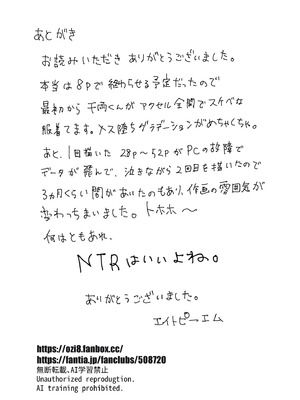 あとがき
お読みいただき ありがとうございました。
本当は8Pで終わらせる予定だったので
最初から 千両くんがアクセル全開でスケベな
服着てます。メス堕ちグラデーションがめちゃくちゃ。
あと、1回描いた 28P〜52PがPCの故障で
データが飛んで、泣きながら2回目を描いたので
3ヵ月くらい間があいたのもあり、作画の雰囲気が
変わっちまいました。トホホ〜
何はともあれ、
NTRはいいよね。
ありがとうございました。
エイトピーエム
https://ozi8.fanbox.cc/
https://fantia.jp/fanclubs/508720
無断転載、AI学習禁止
Unauthorized reprodugtion.
AI training prohibited.